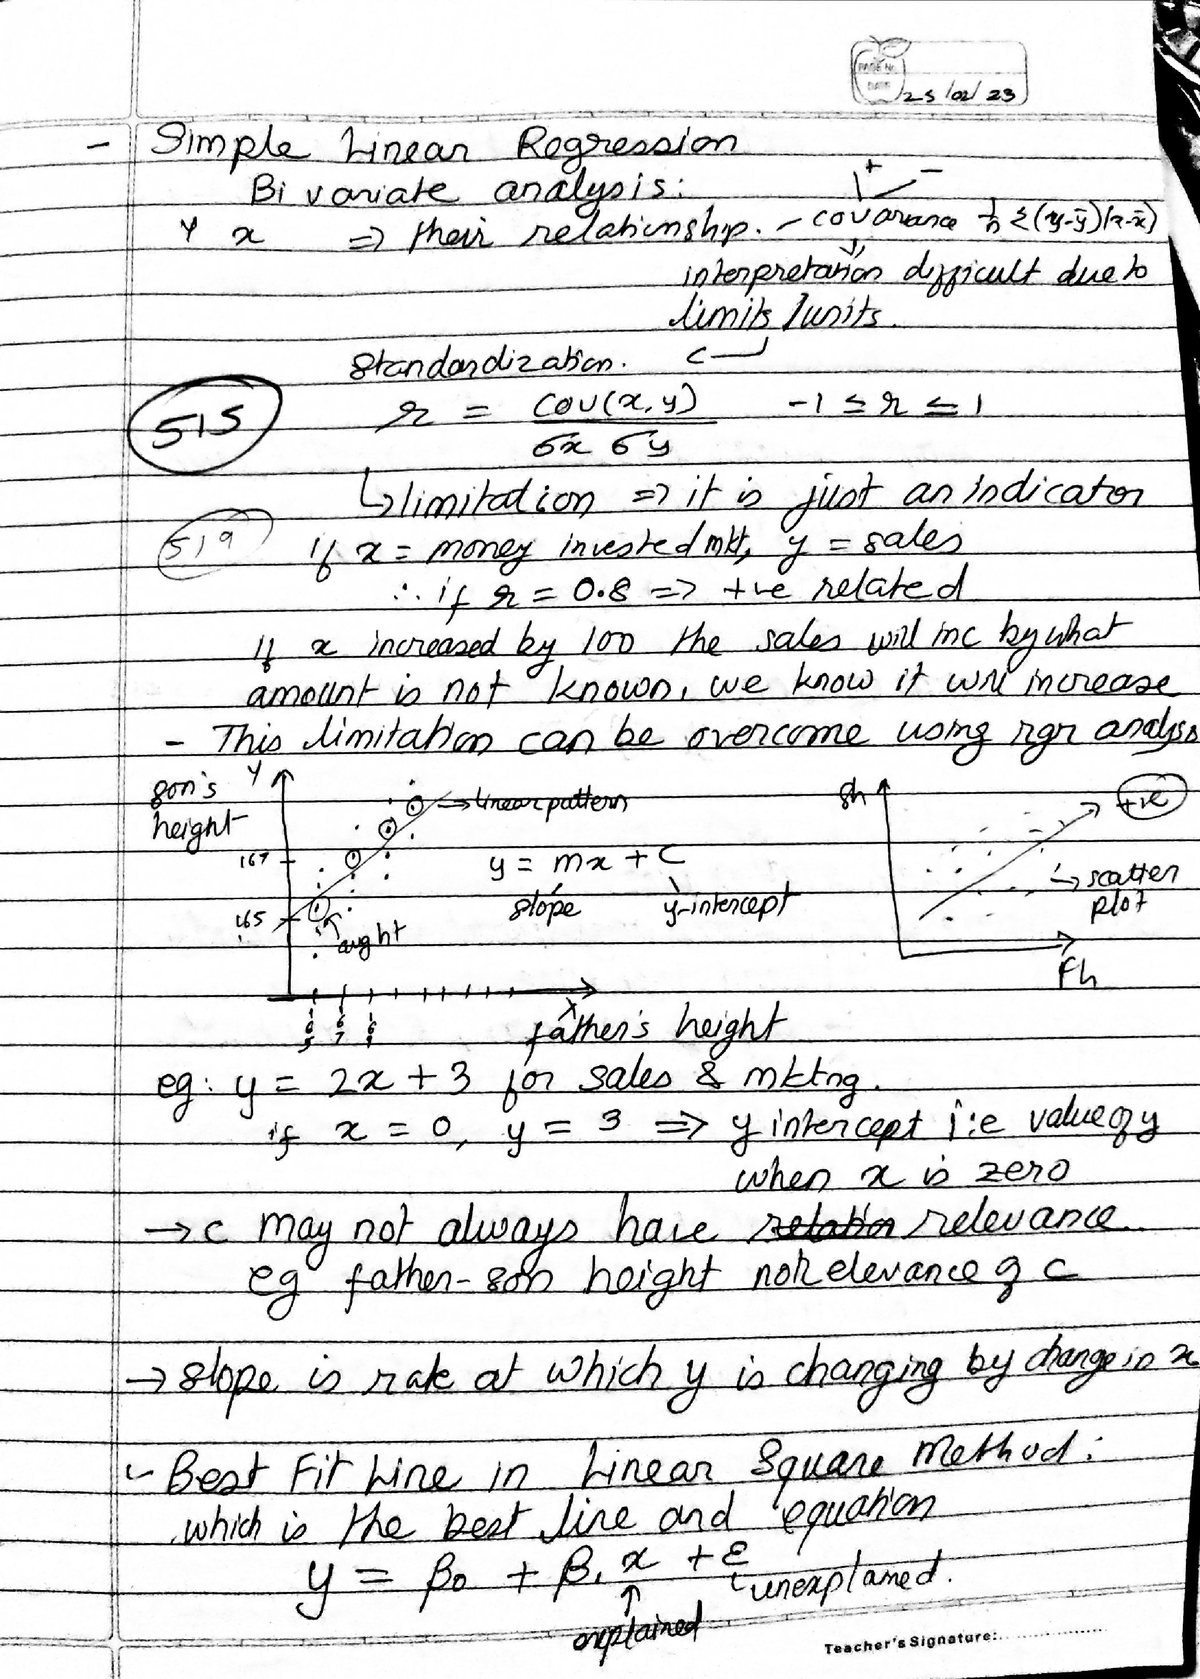 PAGE No.
DATE 25/02/23
- Simple Linear Regression
Bi variate analysis:
+ -
Y x => their relationship. - covariance 1/n Σ(y-ȳ)(x-x̄)
interpretation difficult due to
limits / units.
Standardization.
515
r = cov(x,y) / σx σy -1 ≤ r ≤ 1
↳ limitation => it is just an indicator
519
If x = money invested mkt, y = sales
∴ if r = 0.8 => +ve related
If x increased by 100 the sales will inc by what
amount is not known, we know it will increase
- This limitation can be overcome using rgr analysis
son's height Y
→ linear pattern
167
165
y = mx + c
slope y-intercept
165 167 169
X
father's height
Sh
+ve
↳ scatter plot
Fh
eg: y = 2x + 3 for sales & mktng.
if x = 0, y = 3 => y intercept i:e value of y
when x is zero
→ c may not always have relation relevance
eg father-son height no relevance of c
→ slope is rate at which y is changing by change in x
- Best Fit Line in Linear Square Method:
which is the best line and equation
y = β0 + β1 x + ε
unexplained.
explained
Teacher's Signature: